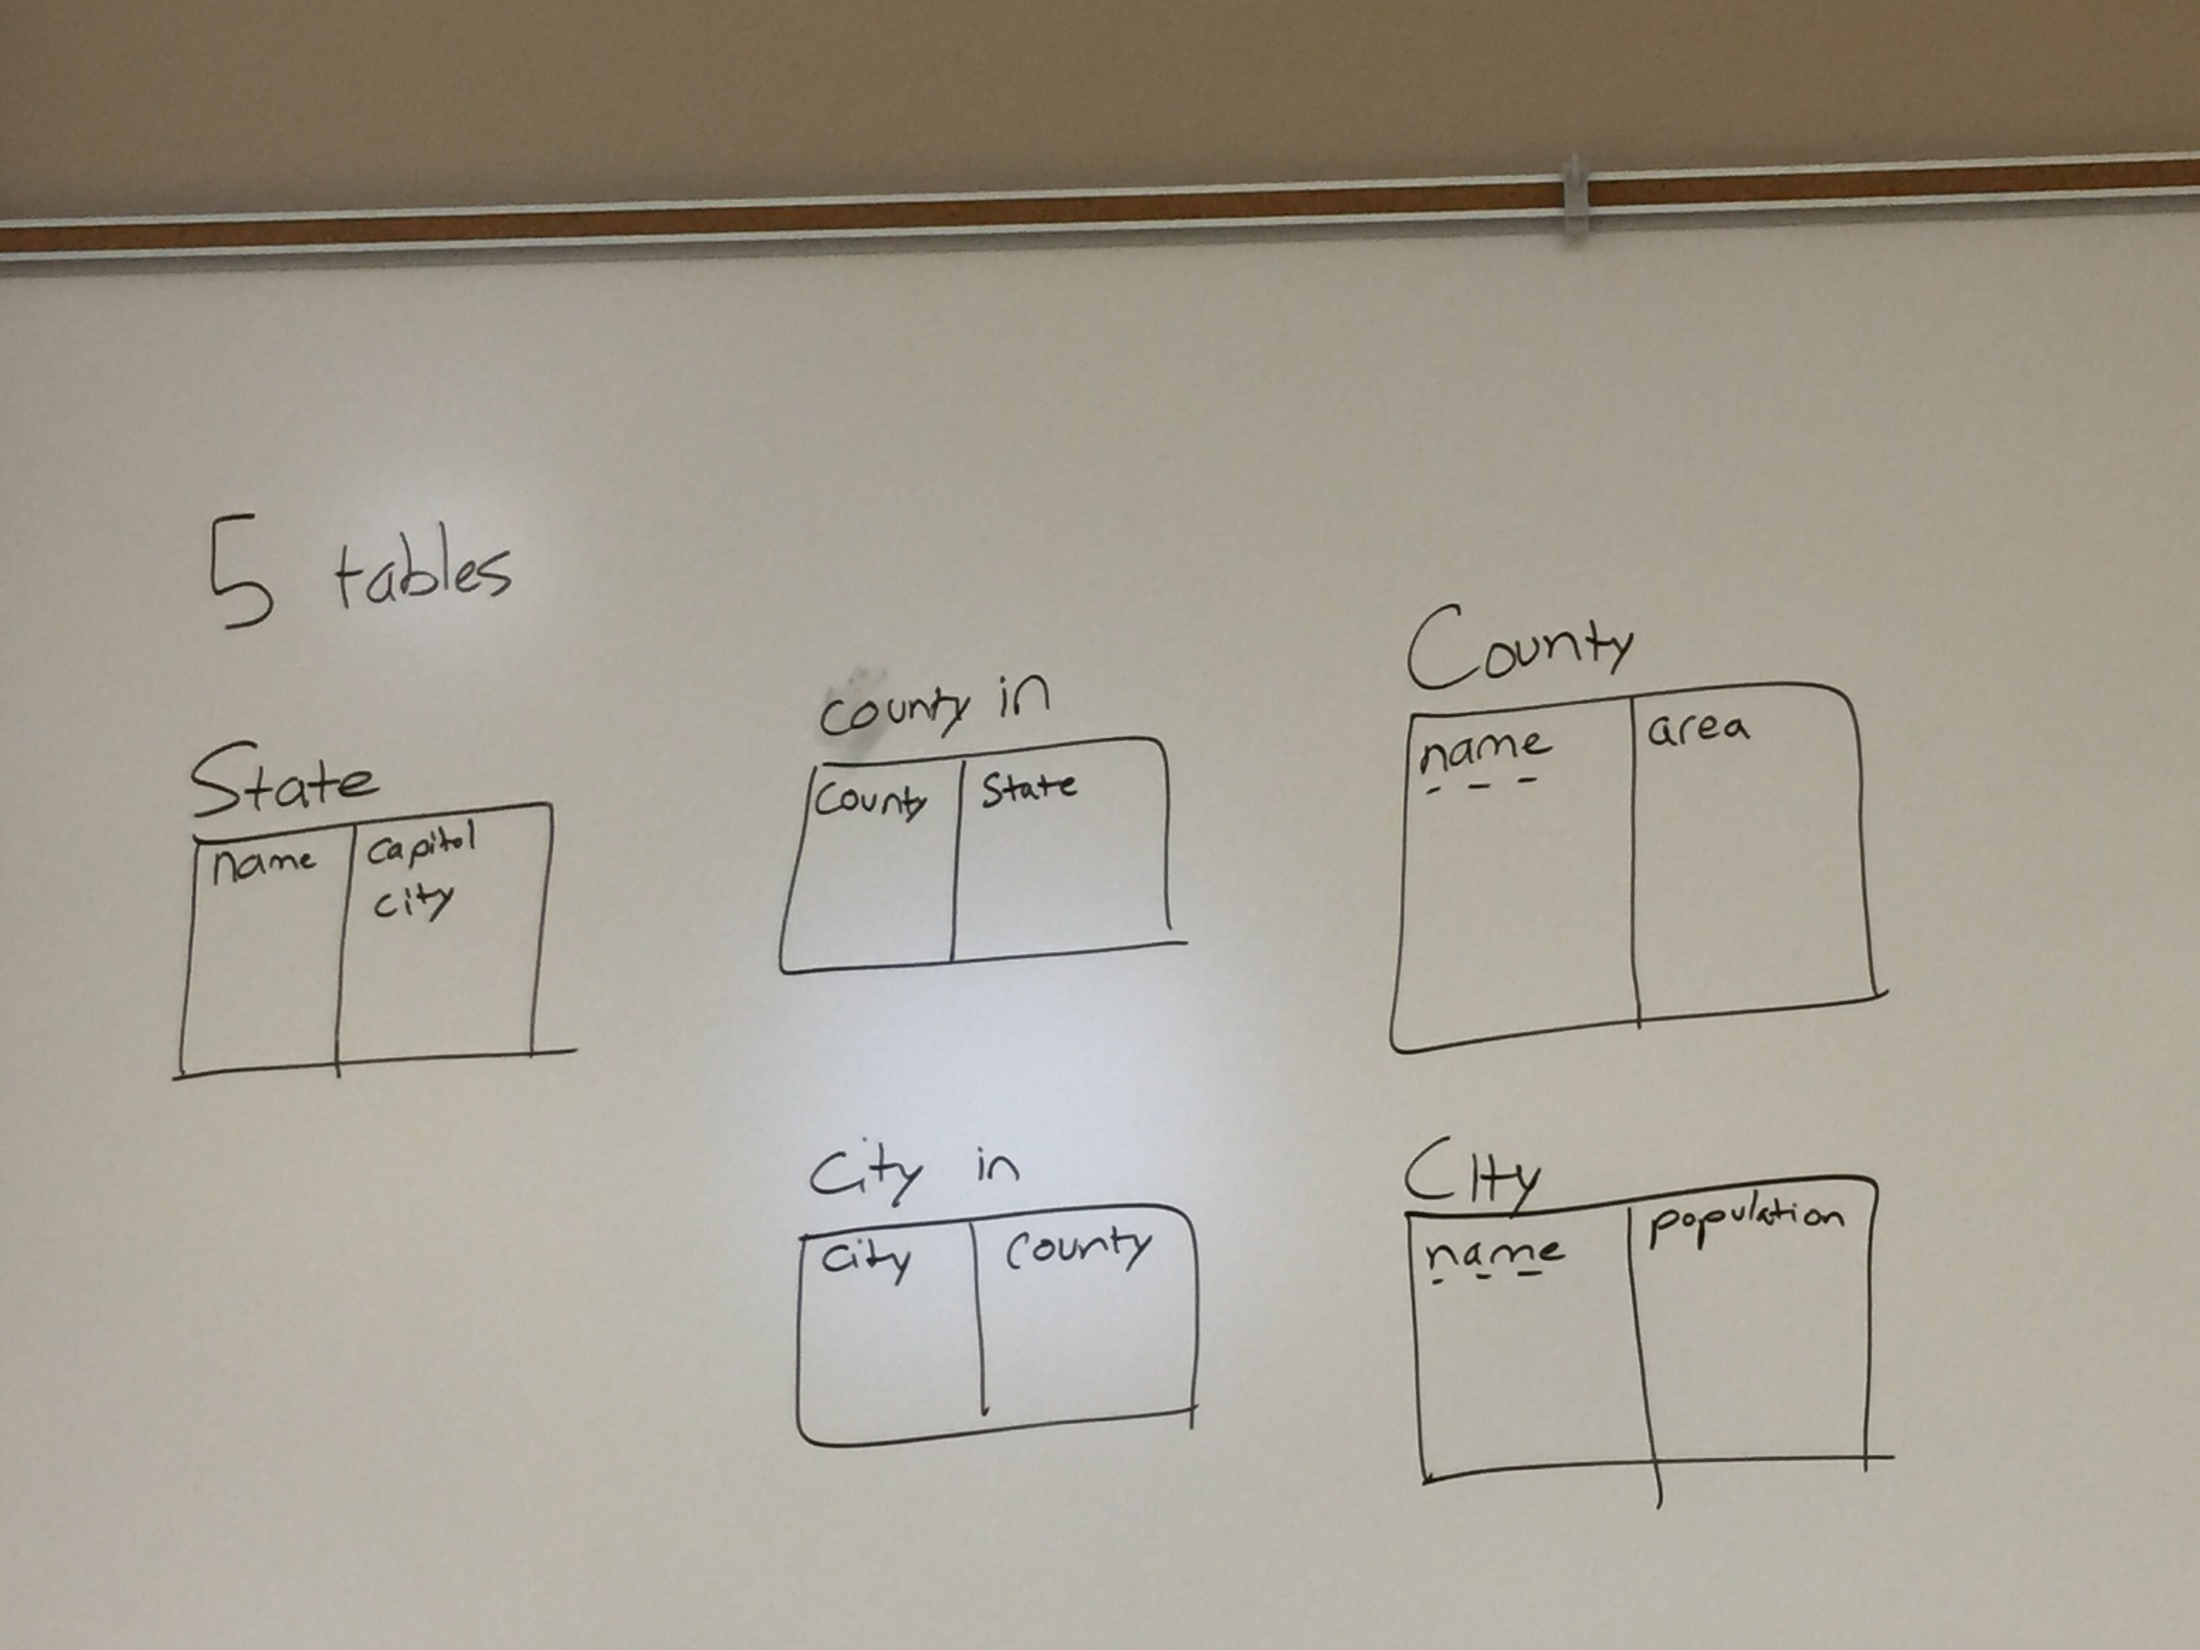 5 tables
State
name
capitol
city
county in
County
State
County
name
area
City in
city
county
CIty
name
population